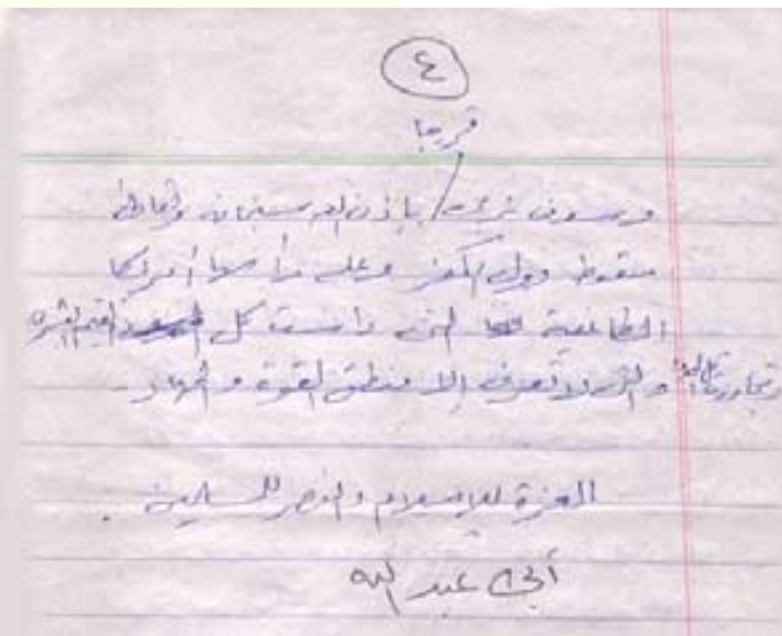 ٤
قريبا
وسوف نرى بإذن الله سبحانه وتعالى
سقوط دول الكفر وعلى رأسها أمريكا
الطاغية التي داست كل القيم البشرية
وتجاوزت كل والتي لا تعرف إلا منطق القوة والجهاد.
العزة للإسلام والنصر للمسلمين.
عبد الله